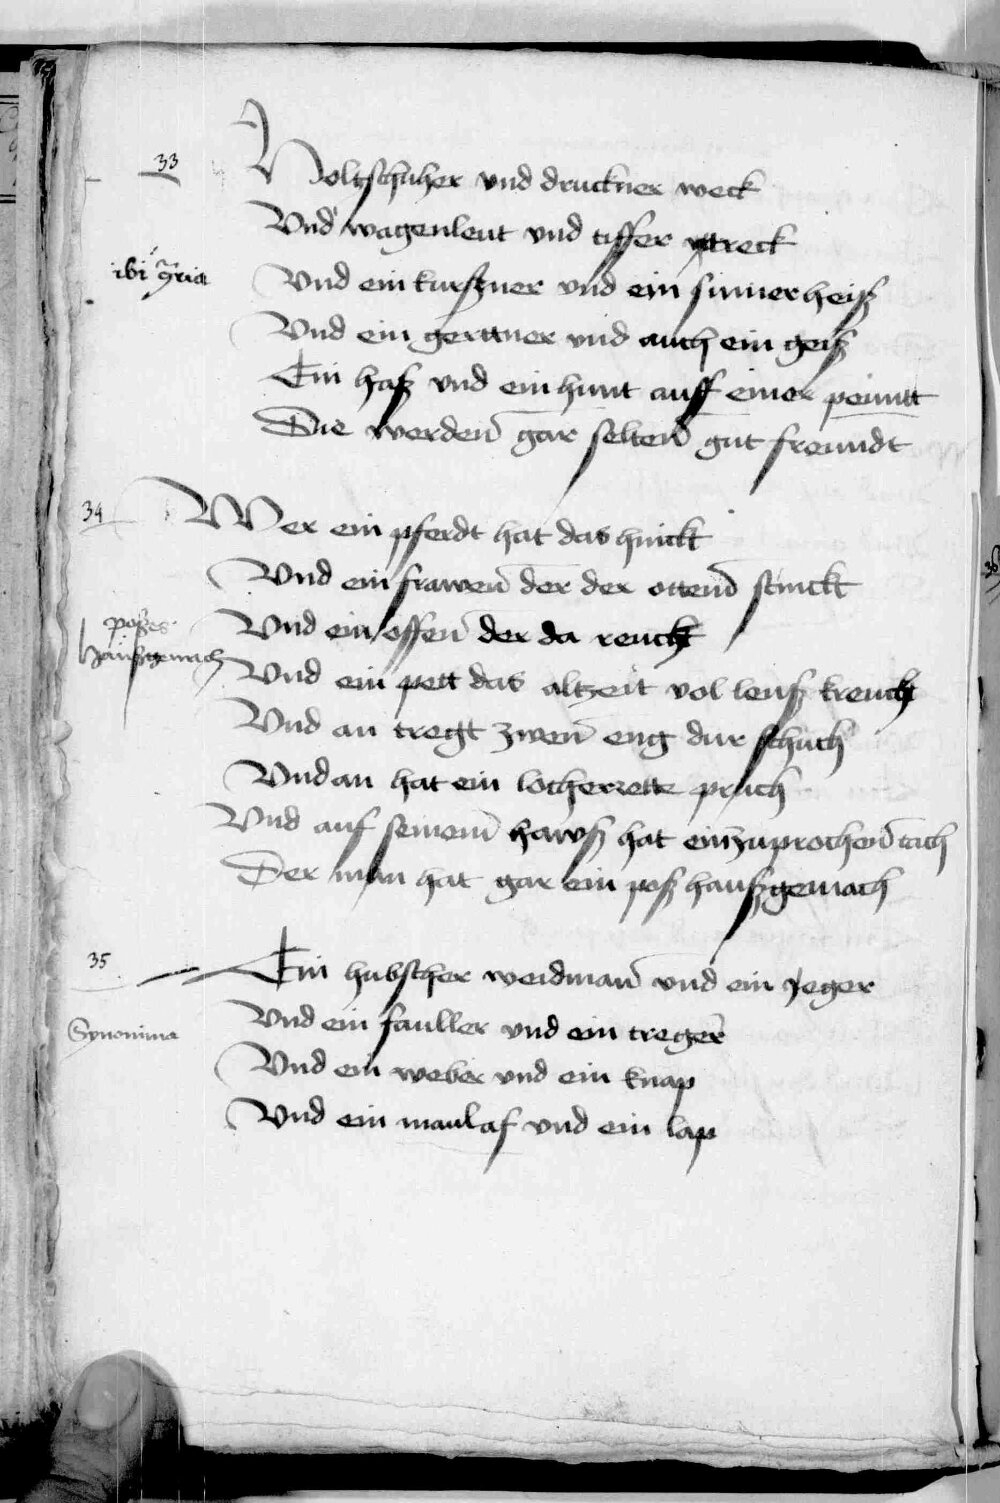 33
Holtzschuher vnd druckner weck
Vnd wagenleut vnd tiffer treck
Vnd ein kurßner vnd ein sumer heiß
ibi
Vnd ein gerttner vnd auch ein geiß
Ein haß vnd ein hunt auff einer peuntt
Die werden gar selten gut freundt
34
Wer ein pferdt hat das hinckt
Vnd ein frawen der der ottem stinckt
Vnd ein offen der da reucht
poßes
haußgemach
Vnd ein pett das altzeit vol leuß kreucht
Vnd an tregt zwen eng dur schuch
Vnd an hat ein locherrette pruch
Vnd auf seinem hawß hat ein zuprochen tach
Der man hat gar ein poß haußgemach
35
Ein hubscher weidman vnd ein Jeger
Vnd ein fauller vnd ein treger
Synonima
Vnd ein weber vnd ein knap
Vnd ein maulaf vnd ein lap